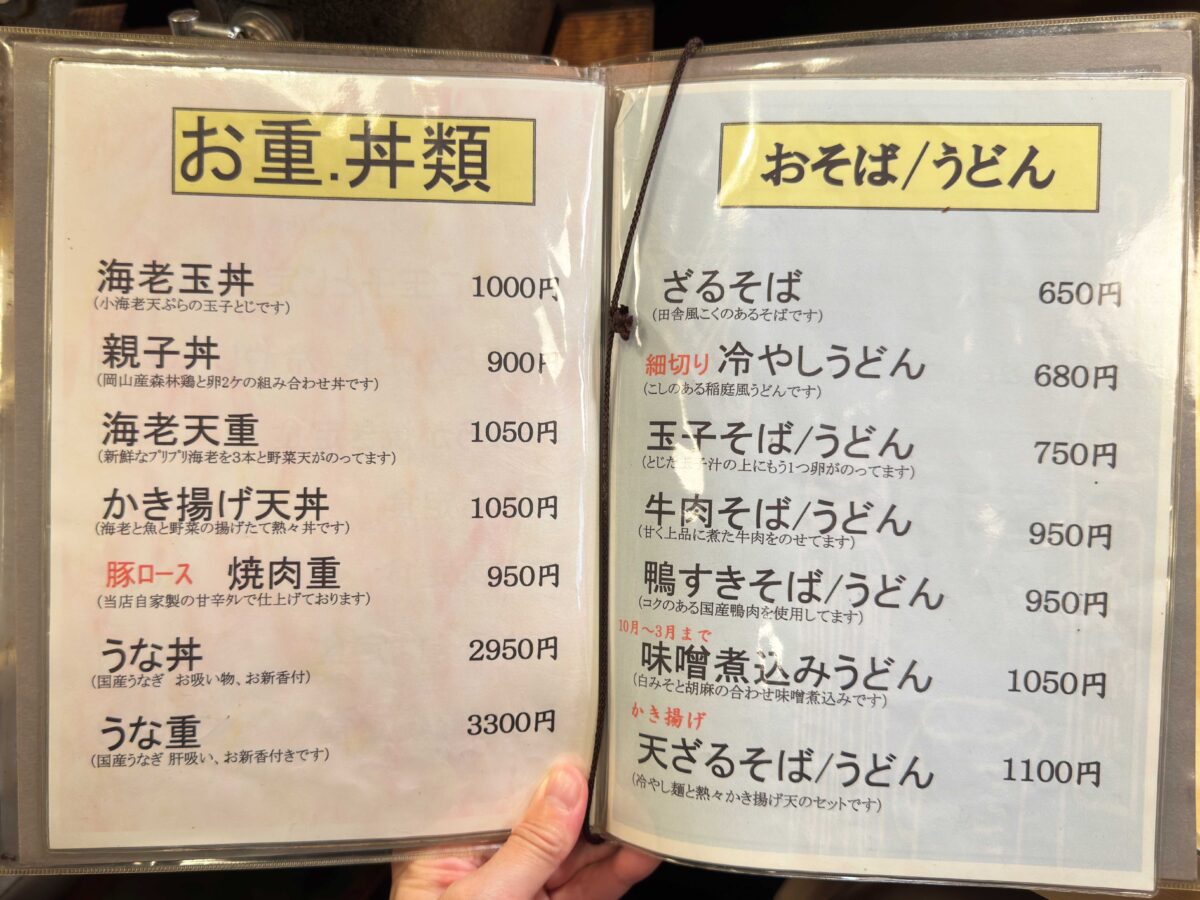 お重.丼類
海老玉丼 1000円
（小海老天ぷらの玉子とじです）
親子丼 900円
（岡山産森林鶏と卵2ケの組み合わせ丼です）
海老天重 1050円
（新鮮なﾌﾟﾘﾌﾟﾘ海老を3本と野菜天がのってます）
かき揚げ天丼 1050円
（海老と魚と野菜の揚げたて熱々丼です）
豚ロース 焼肉重 950円
（当店自家製の甘辛ﾀﾚで仕上げております）
うな丼 2950円
（国産うなぎ お吸い物、お新香付）
うな重 3300円
（国産うなぎ 肝吸い、お新香付きです）
おそば/うどん
ざるそば 650円
（田舎風こくのあるそばです）
細切り 冷やしうどん 680円
（こしのある稲庭風うどんです）
玉子そば/うどん 750円
（とじた玉子汁の上にもう1つ卵がのってます）
牛肉そば/うどん 950円
（甘く上品に煮た牛肉をのせてます）
鴨すきそば/うどん 950円
（コクのある国産鴨肉を使用してます）
10月～3月まで
味噌煮込みうどん 1050円
（白みそと胡麻の合わせ味噌煮込みです）
かき揚げ
天ざるそば/うどん 1100円
（冷やし麺と熱々かき揚げ天のセットです）